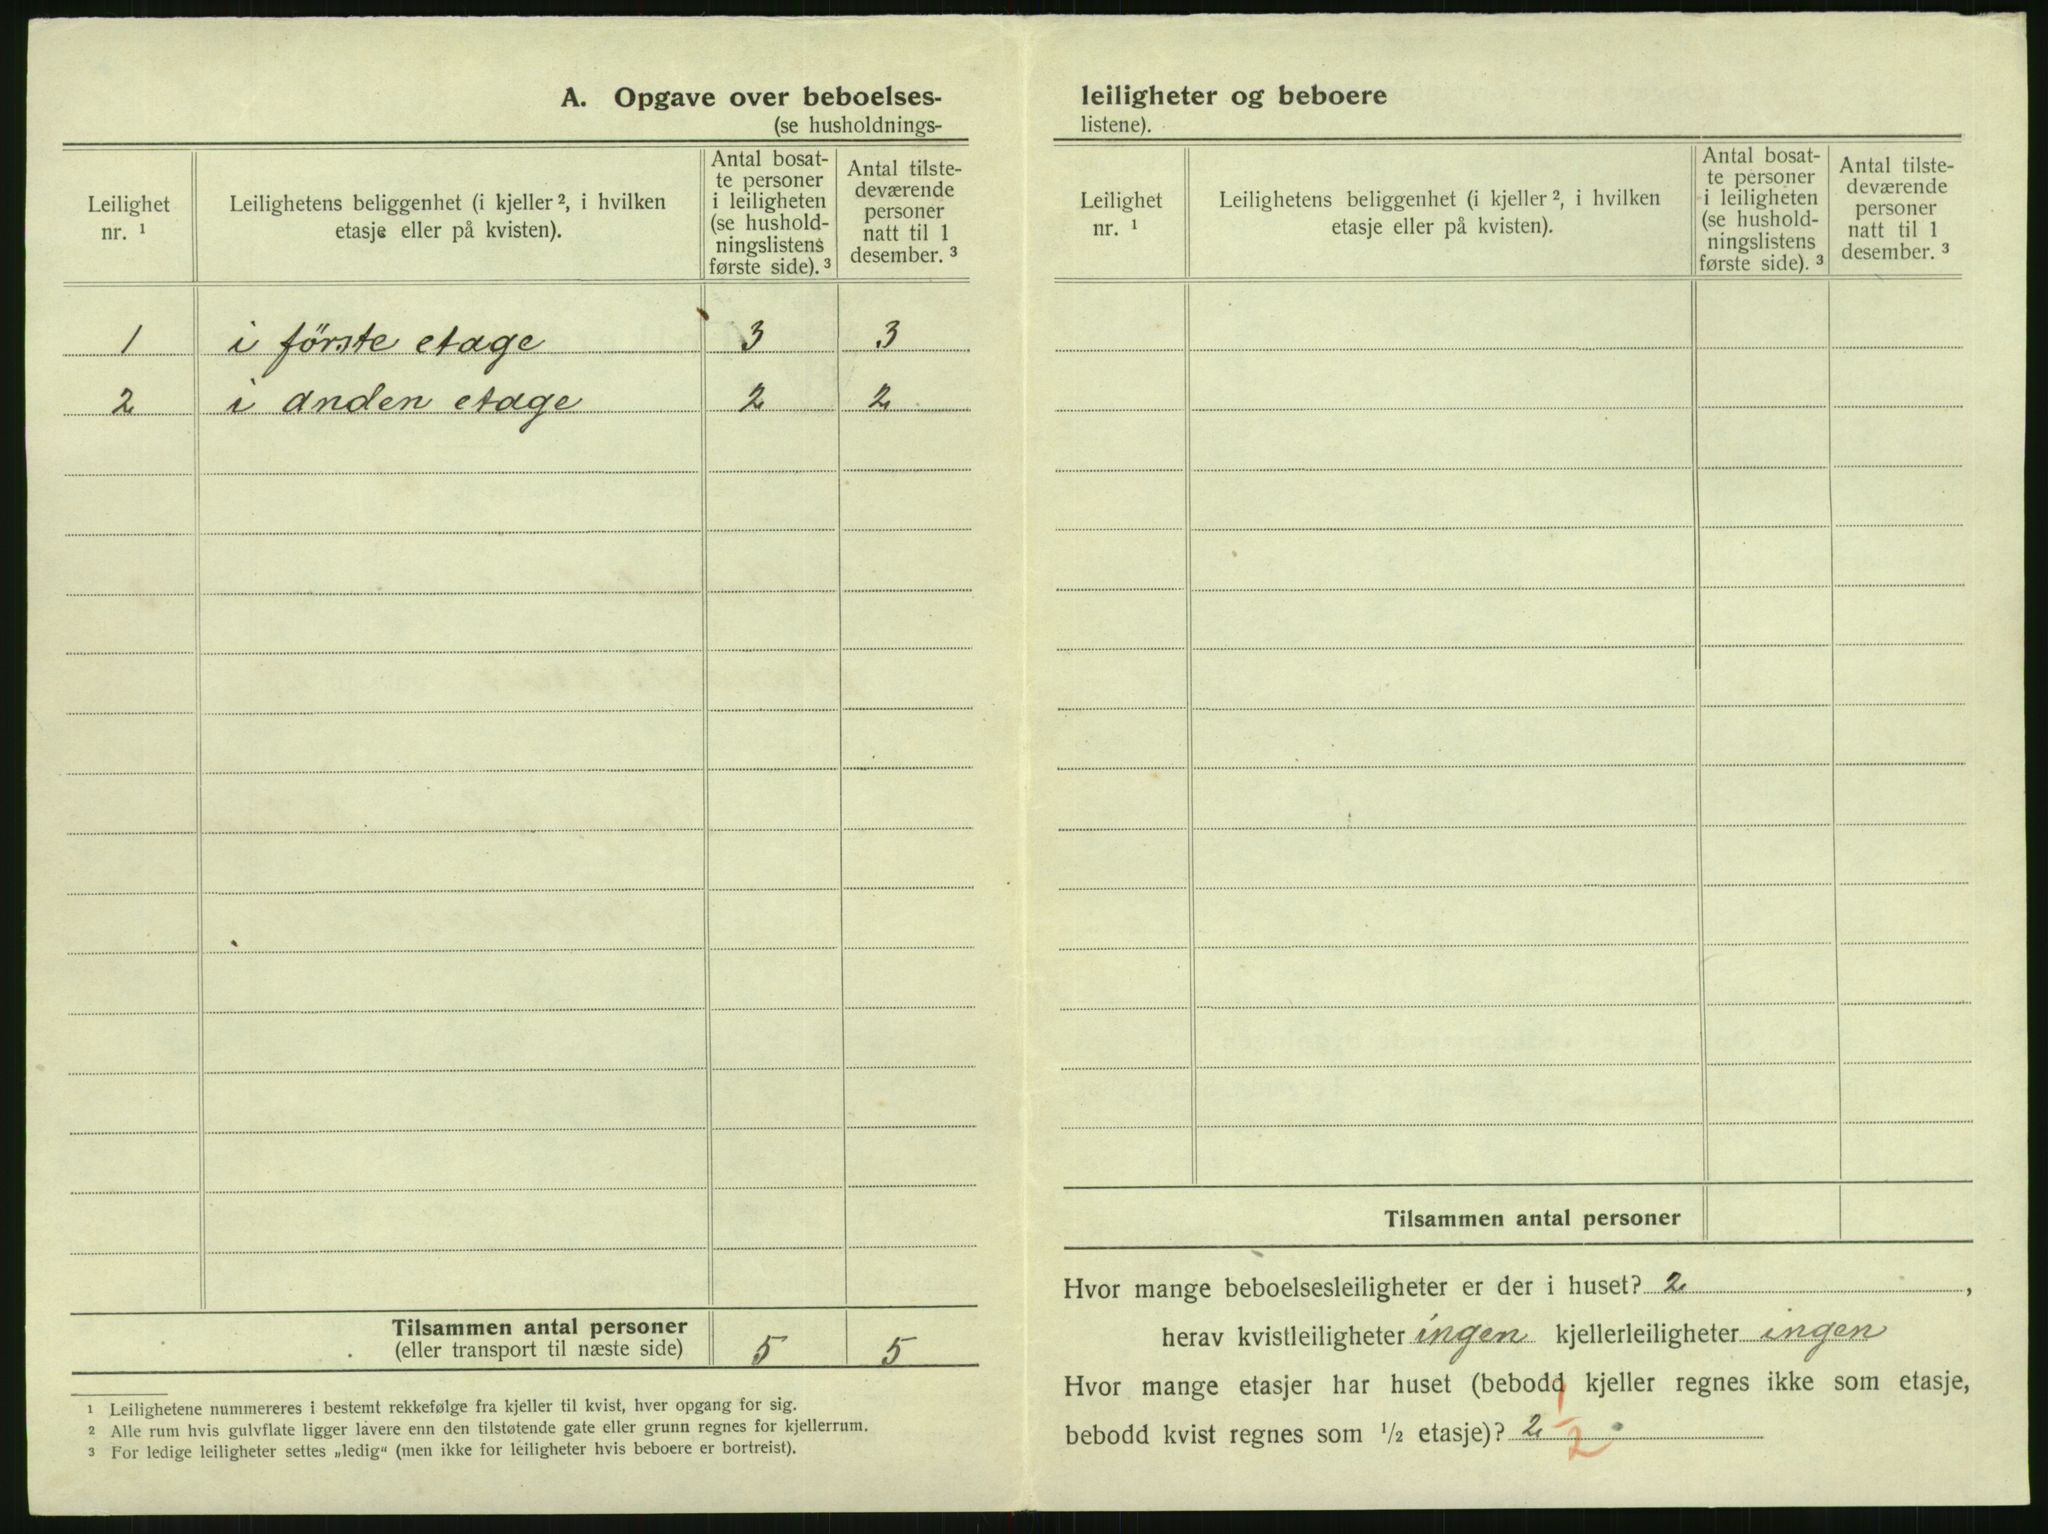 A. Opgave over beboelses-
(se husholdnings-
Leilighet nr. ¹
Leilighetens beliggenhet (i kjeller ², i hvilken etasje eller på kvisten).
Antal bosat-
te personer
i leiligheten
(se hushold-
ningslistens
første side). ³
Antal tilste-
deværende
personer
natt til 1
desember. ³
1 i første etage 3 3
2 i anden etage 2 2
Tilsammen antal personer 5 5
(eller transport til næste side)
¹ Leilighetene nummereres i bestemt rekkefølge fra kjeller til kvist, hver opgang for sig.
² Alle rum hvis gulvflate ligger lavere enn den tilstøtende gate eller grunn regnes for kjellerrum.
³ For ledige leiligheter settes „ledig“ (men ikke for leiligheter hvis beboere er bortreist).
leiligheter og beboere
listene).
Leilighet nr. ¹
Leilighetens beliggenhet (i kjeller ², i hvilken etasje eller på kvisten).
Antal bosat-
te personer
i leiligheten
(se hushold-
ningslistens
første side). ³
Antal tilste-
deværende
personer
natt til 1
desember. ³
Tilsammen antal personer
Hvor mange beboelsesleiligheter er der i huset? 2,
herav kvistleiligheter ingen kjellerleiligheter ingen
Hvor mange etasjer har huset (bebodd kjeller regnes ikke som etasje,
bebodd kvist regnes som ½ etasje)? 2 1/2